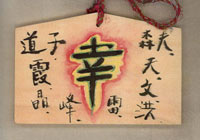 幸
道子
霞
晶、
峰、
雷、
森
夫、
天、
文
洪